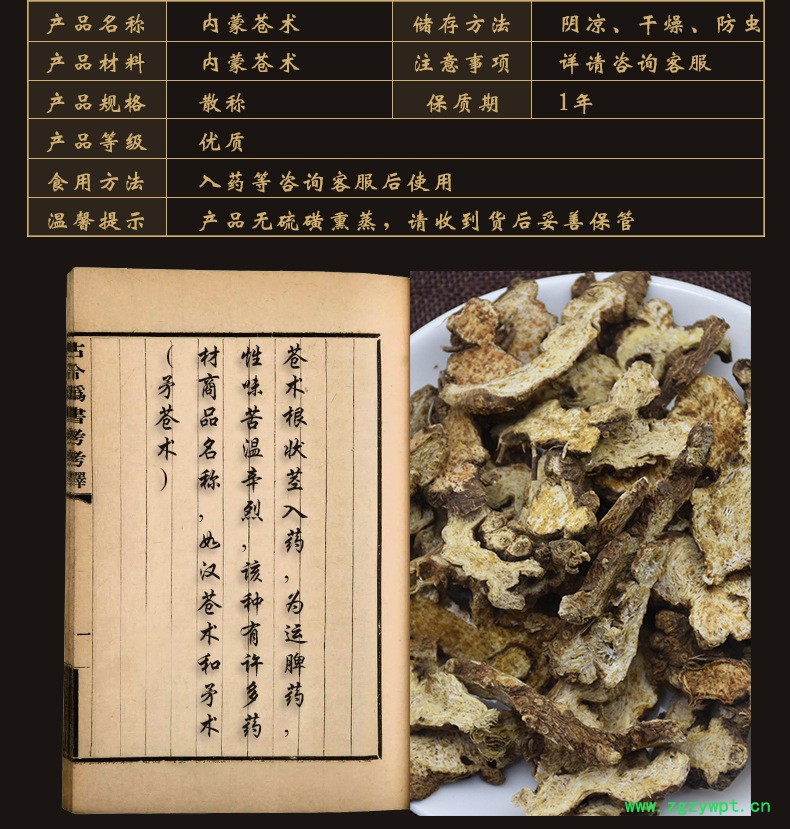 产品名称 内蒙苍术 储存方法 阴凉、干燥、防虫
产品材料 内蒙苍术 注意事项 详请咨询客服
产品规格 散称 保质期 1年
产品等级 优质
食用方法 入药等咨询客服后使用
温馨提示 产品无硫磺熏蒸，请收到货后妥善保管
苍术根状茎入药，为运脾药，
性味苦温辛烈，该种有许多药
材商品名称，如汉苍术和矛术
（矛苍术）
古今伪书考考释
一
www.zgzywpt.cn